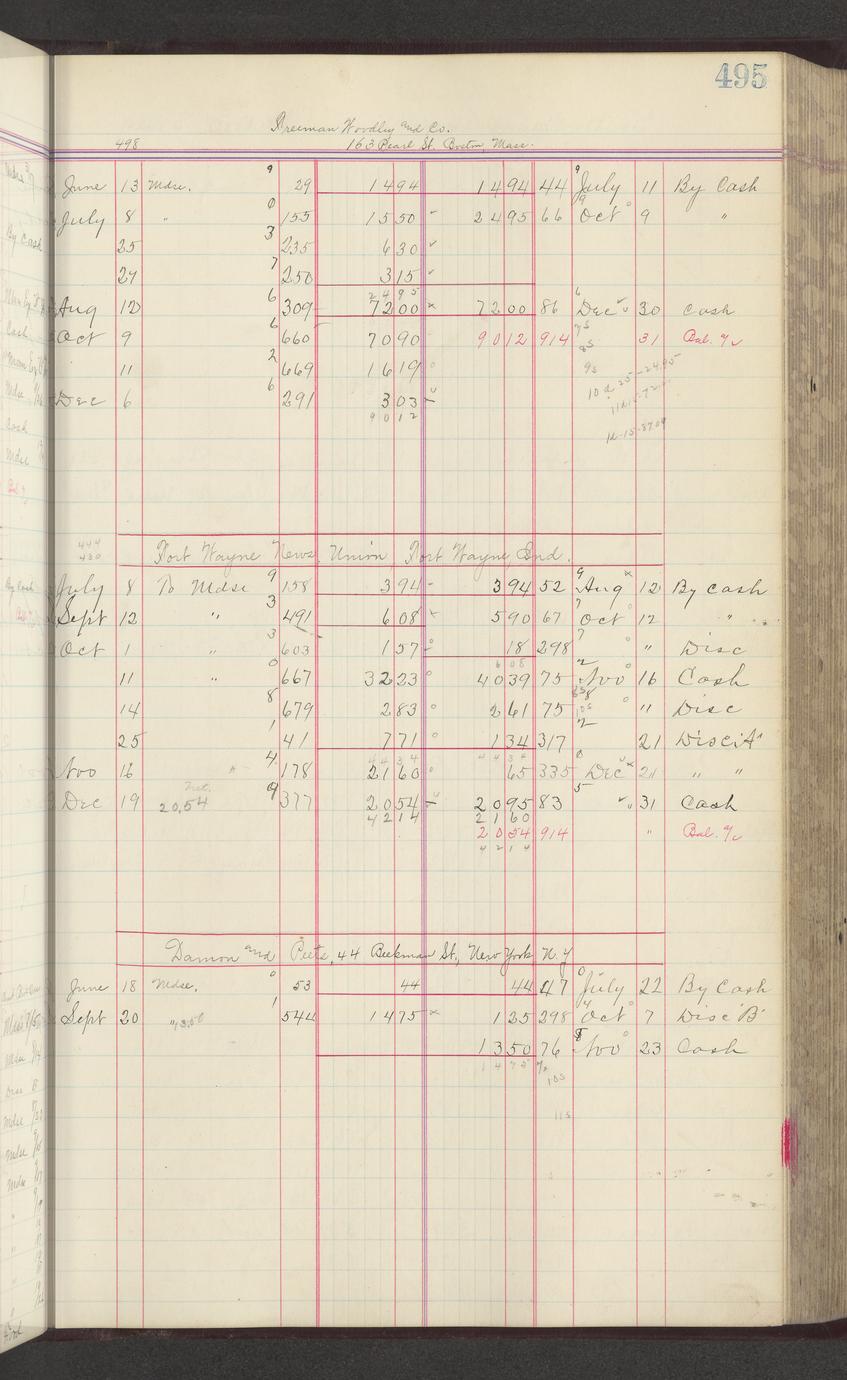 495
and Co.
498 163 Pearl St. Boston, Mass.
June 13 Mdse. 9 29 1494 1494 44 9 July 11 By Cash
July 8 " 0 155 1550 2495 66 9 Oct 9 "
25 3 235 630
7 250 315
2495
Aug 12 6 309 7200 7200 86 6 Dec 30 Cash
Oct 9 6 660 7090 9012 914 31 Bal. a/c
11 2 669 1619
Dec 6 6 291 303
9012
444
430
Fort Wayne News Union Fort Wayne, Ind.
July 8 To Mdse 9 158 394 394 52 9 Aug 12 By Cash
Sept 12 " 3 491 608 590 67 7 Oct 12 "
Oct 1 " 3 603 157 18 298 7 " Disc
608
11 " 0 667 3223 4039 75 2 Nov 16 Cash
14 8 679 283 261 75 8 " Disc
25 1 41 771 134 317 2 21 Disc "A"
4434 4434
Nov 16 4 178 2160 65 335 0 Dec 21 " "
Dec 19 20,54 9 377 2054 2095 83 5 31 Cash
4214 2160
2054 914 " Bal. a/c
4214
Damon and Peets, 44 Beekman St., New York, N.Y
June 18 Mdse. 0 53 44 44 47 0 July 22 By Cash
Sept 20 " 1 544 1475 125 298 4 Oct 7 Disc "B"
1350 76 8 Nov 23 Cash
1475
10s
11s